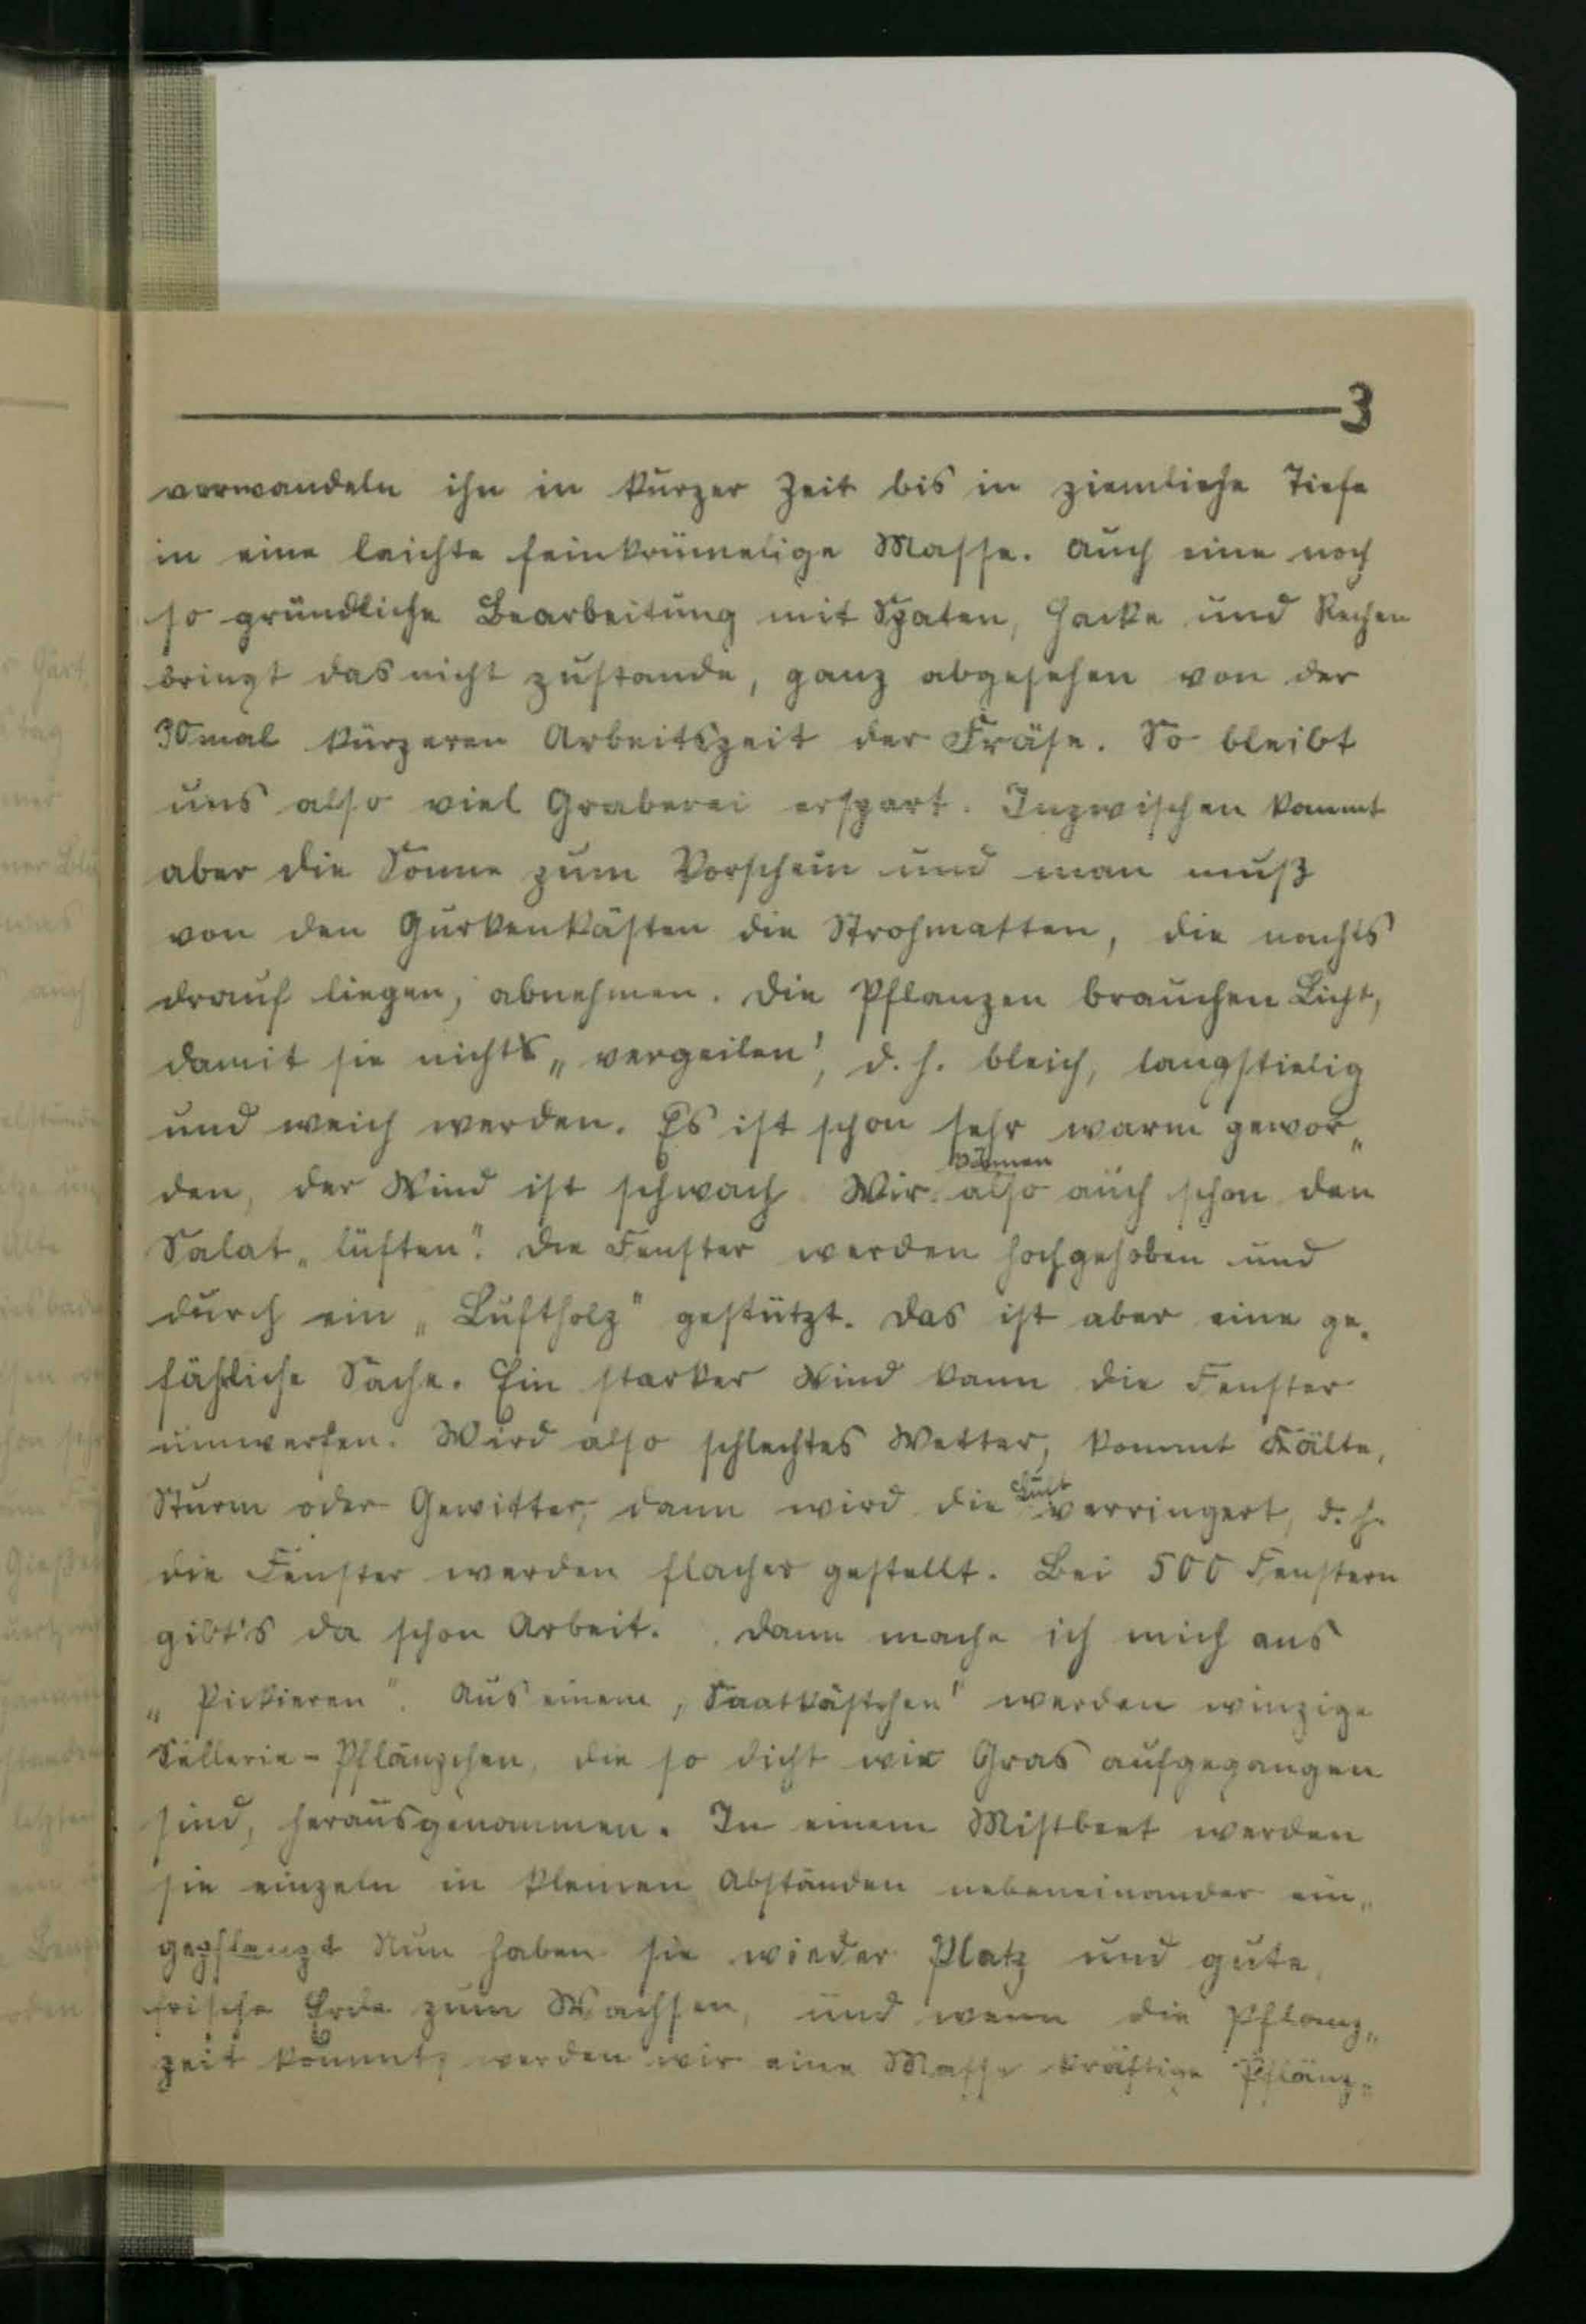 3
verwandeln ihn in kurzer Zeit bis in ziemliche Tiefe
in eine leichte feinkrümelige Masse. Auch eine noch
so gründliche Bearbeitung mit Spaten, Hacke und Rechen
bringt das nicht zustande, ganz abgesehen von der
30mal kürzeren Arbeitszeit der Fräse. So bleibt
uns also viel Graberei erspart. Inzwischen kommt
aber die Sonne zum Vorschein und man muß
von den Gurkenkästen die Strohmatten, die nachts
drauf liegen, abnehmen. Die Pflanzen brauchen Licht,
damit sie nicht „vergeilen", d. h. bleich, langstielig
und weich werden. Es ist schon sehr warm gewor„
können
den, der Wind ist schwach. Wir also auch schon den
Salat „lüften". Die Fenster werden hochgehoben und
durch ein „Luftholz" gestützt. Das ist aber eine ge„
fährliche Sache. Ein starker Wind kann die Fenster
umwerfen. Wird also schlechtes Wetter, kommt Kälte,
Luft
Sturm oder Gewitter, dann wird die verringert, d. h.
die Fenster werden flacher gestellt. Bei 500 Fenstern
gibt's da schon Arbeit. Dann mache ich mich ans
„Pickieren". Aus einem „Saatkästchen" werden winzige
Sellerie-Pflänzchen, die so dicht wie Gras aufgegangen
sind, herausgenommen. In einem Mistbeet werden
sie einzeln in kleinen Abständen nebeneinander ein„
gepflanzt. Nun haben sie wieder Platz und gute,
frische Erde zum Wachsen, und wenn die Pflanz„
zeit kommt, werden wir eine Masse kräftige Pflänz„